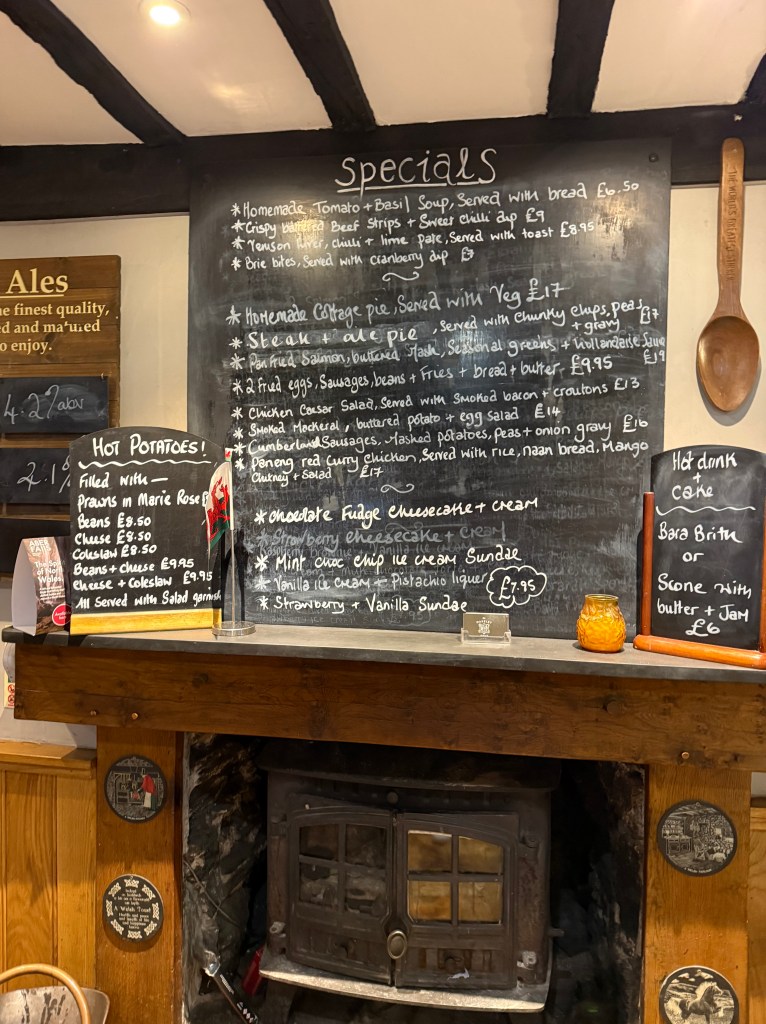 Specials
* Homemade Tomato + Basil Soup, Served with bread £6.50
* Crispy battered Beef Strips + Sweet chilli dip £9
* Venison liver, chilli + lime pate, Served with toast £8.95
* Brie bites, Served with cranberry dip
* Homemade Cottage pie, Served with Veg £17
* Steak + ale pie, Served with Chunky chips, peas + gravy £17
* Pan fried Salmon, buttered Mash, Seasonal greens + Hollandaise Sauce £19
* 2 Fried eggs, Sausages, beans + Fries + bread + butter £9.95
* Chicken Caesar Salad, Served with Smoked bacon + croutons £13
* Smoked Mackeral, buttered potato + egg salad £14
* Cumberland Sausages, Mashed potatoes, Peas + onion gravy £16
* Paneng red Curry chicken, Served with rice, naan bread, Mango
Chutney + Salad £17
* Chocolate Fudge Cheesecake + cream
* Strawberry cheesecake + cream
* Mint choc chip ice cream Sundae
* Vanilla ice cream + Pistachio liquer
£7.95
* Strawberry + Vanilla Sundae
Ales
finest quality,
ed and matured
o enjoy.
4.2% abv
HOT POTATOES!
Filled with —
Prawns in Marie Rose
Beans £8.50
Cheese £8.50
Coleslaw £8.50
Beans + cheese £9.95
Cheese + Coleslaw £9.95
All Served with Salad garnish
Hot drink
+
cake
Bara Brith
or
Scone with
butter + Jam
£6
ABER
FALLS
A Welsh Toast